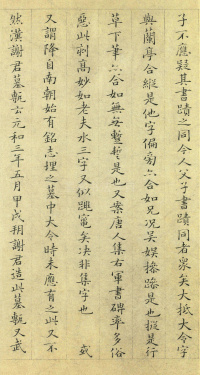 子不應疑其書蹟之同今人父子書蹟同者衆矣大抵大令字
與蘭亭合縱是他字偏旁六合如兄况吴娛捲蹗是也㧞是行
草下筆六合如無每蹔誓是也又案唐人集右軍書碑率多俗
惡此刻高妙如老夫水三字又似踐竈矣决非集字也 或
又謂降自南朝始有銘志埋之墓中大令時未應有之此又不
然漢謝君墓甎云元和三年五月甲戌朔謝君造此墓甎又武